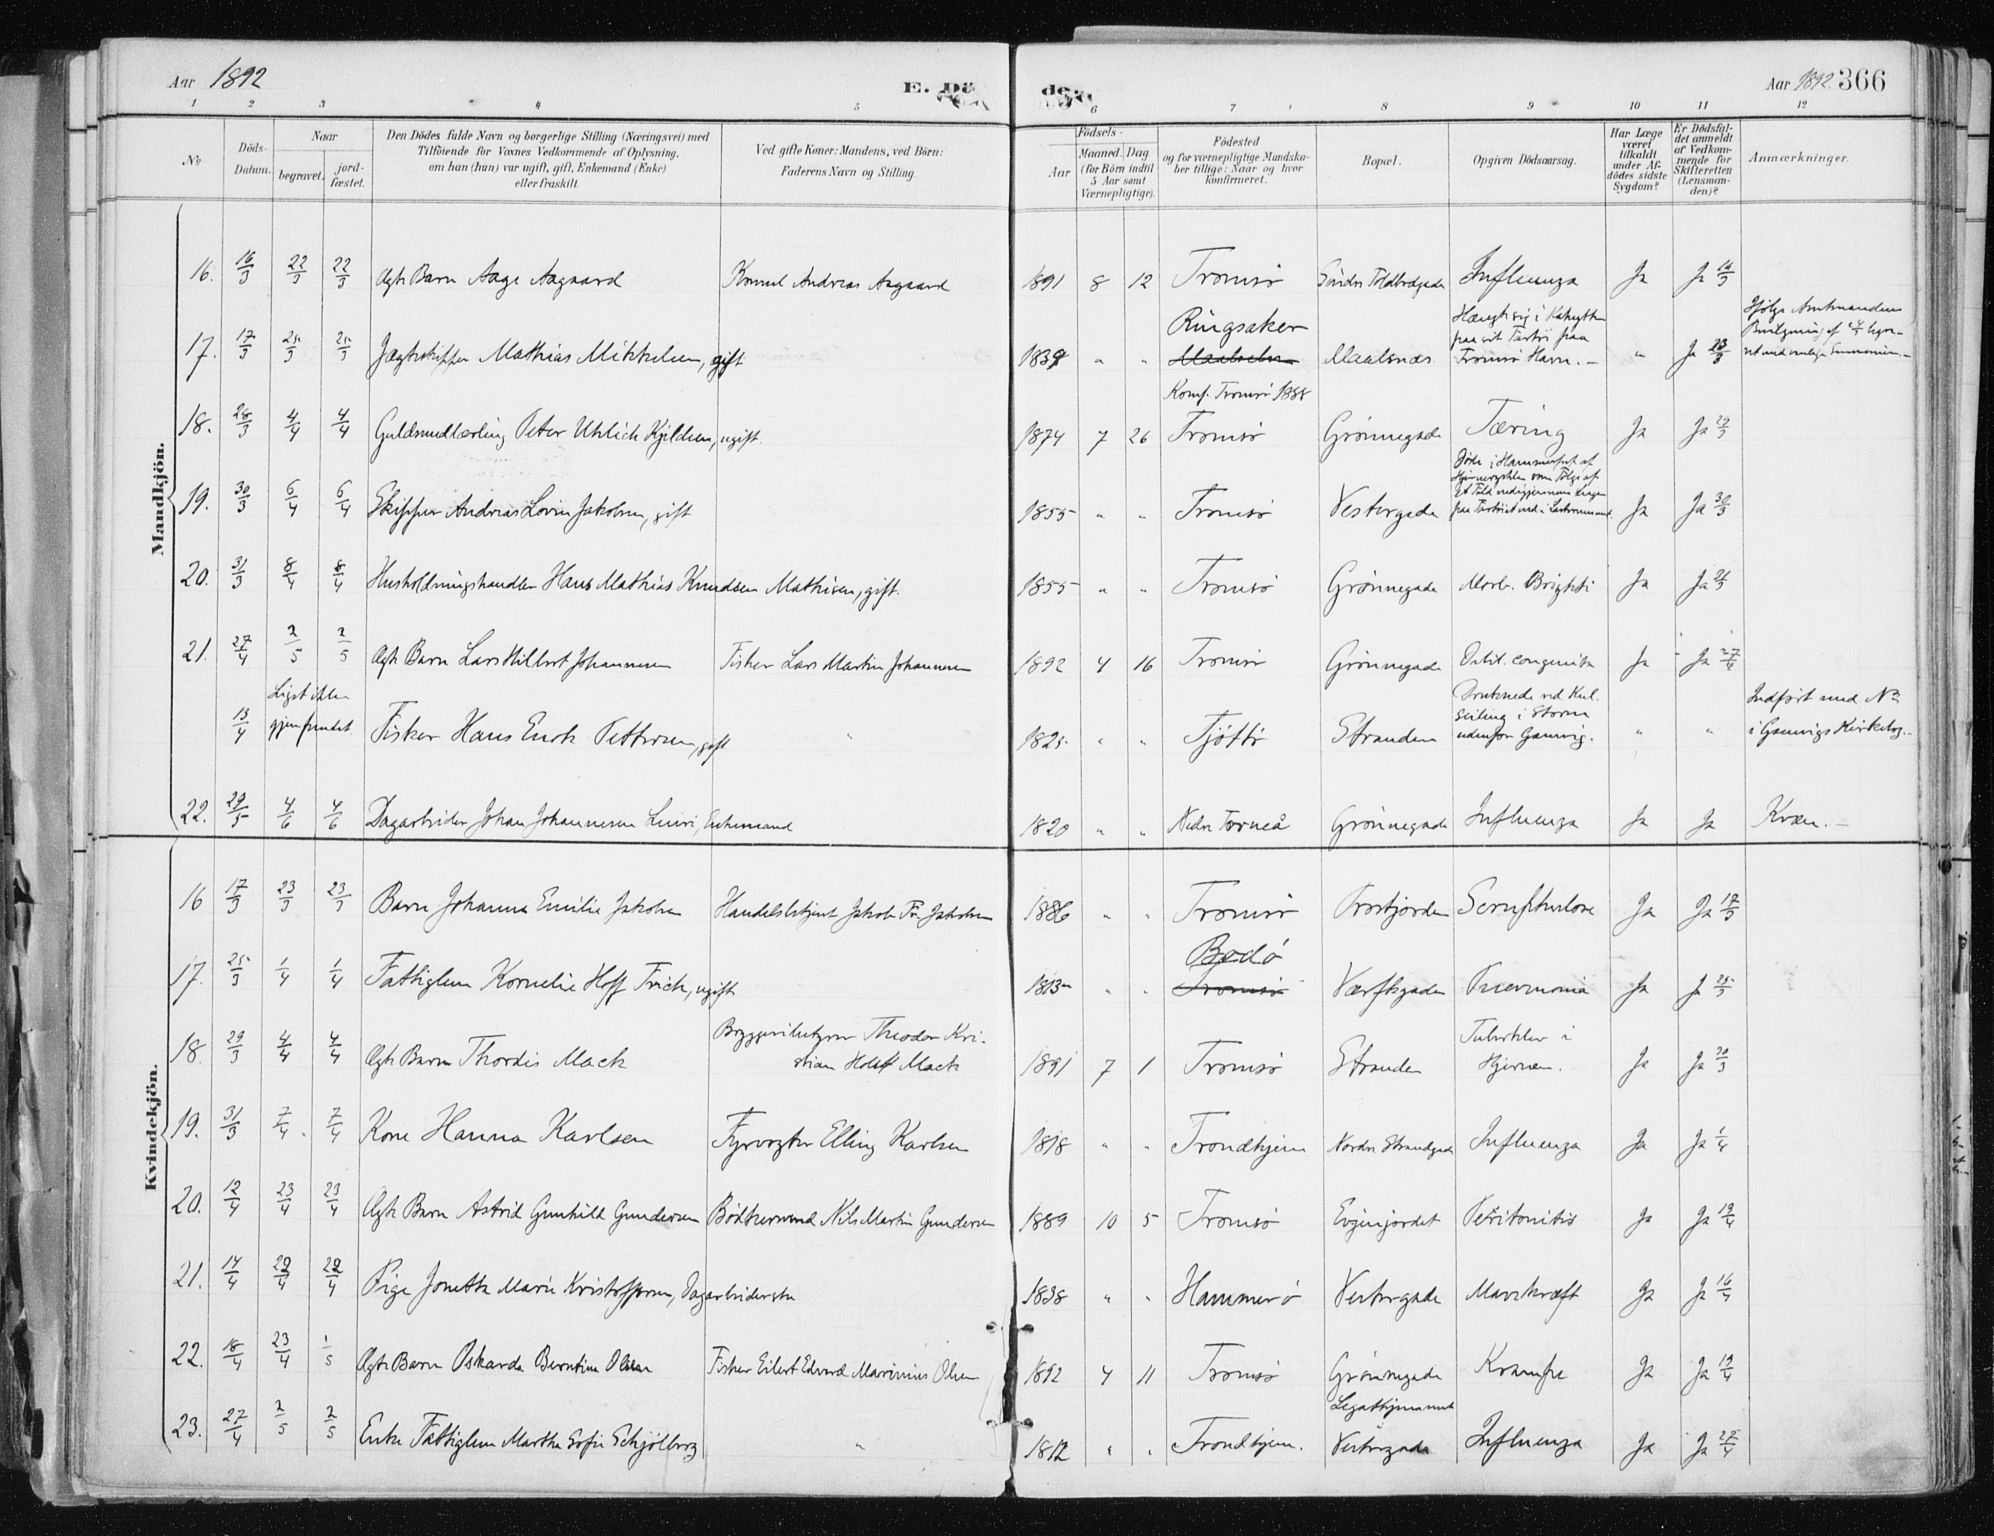 Aar 1892
E. Dö
de.
Aar 1892. 366
1 2 3 4 5 6 7 8 9 10 11 12
No
Döds-Datum.
Naar
begravet.
jord-fæstet.
Den Dödes fulde Navn og borgerlige Stilling (Næringsvei) med
Tilföiende for Voxnes Vedkommende af Oplysning,
om han (hun) var ugift, gift, Enkemand (Enke)
eller fraskilt.
Ved gifte Koner: Mandens, ved Börn:
Faderens Navn og Stilling.
Födsels-
Aar
Maaned. Dag
(for Börn indtil
5 Aar samt
Værnepligtige).
Födested
og for værnepligtige Mandska-
ber tillige: Naar og hvor
konfirmeret.
Bopæl.
Opgiven Dödsaarsag.
Har Læge
været
tilkaldt
under Af-
dödes sidste
Sygdom?
Er Dödsfal-
det anmeldt
af Vedkom-
mende for
Skifteretten
(Lensman-
den)?
Anmærkninger.
Mandkjön.
16. 16/3 22/3 22/3 Ægte Barn Aage Aagaard Konsul Andreas Aagaard 1891 8 12 Tromsø Søndre Toldbodgade Influenza Ja Ja 16/3
17. 17/3 25/3 25/3 Jægteskipper Mathias Mikkelsen, gift 1839 " " Ringsaker Maalselv Maalsnæs Hængte sig i Kahytten
paa sit Fartøi paa
Tromsø Havn. " Ja 23/3 Ifølge Amtmandens
18. 28/3 4/4 4/4 Guldsmedlærling Peter Uhlich Kjeldsen, ugift. 1874 7 26 Konf. Tromsø 1888
Tromsø Grønnegade Tæring Ja Ja 29/3
19. 30/3 6/4 6/4 Skipper Andreas Lovin Jakobsen, gift 1855 " " Tromsø Vestergade Døde i Hammerfest af
Ja Ja 30/3
20. 31/3 8/4 8/4 Husholdningshandler Hans Mathias Knudsen Mathisen, gift. 1855 " " Tromsø Grønnegade Morb. Brightii Ja Ja 31/3
21. 27/4 2/5 2/5 Ægte Barn Lars Hilbert Johannesen Fisker Lars Martin Johannesen 1892 4 16 Tromsø Grønnegade Debil. congenita Ja Ja 27/4
13/4 Liget ikke
gjenfundet Fisker Hans Enok Pettersen, gift " 1825 " " Tjøttø Stranden Druknede ved Kul-
seiling i Storm
udenfor Gamvig. " " Indført med No
i Gamvigs Kirkebog.
22. 29/5 4/6 4/6 Dagarbeider Johan Johannesen Leivi, Enkemand 1820 " " Nedre Torneå Grønnegade Influenza Ja Ja Kvæn.
Kvindekjön.
16 17/3 23/3 23/3 Barn Johanna Emilie Jakobsen Handelsbetjent Jakob Fr. Jakobsen 1886 " " Tromsø Prestjorden Scrufhulose Ja Ja 17/3
17. 25/3 1/4 1/4 Fattiglem Kornelie Hoff Frich, ugift 1813 " " Bodø Tromsø Værftsgaden Pneumonia Ja Ja 25/3
18. 29/3 4/4 4/4 Ægte Barn Thordis Mack Bryggeribestyrer Theodor Kri-
stian Holst Mack 1891 7 1 Tromsø Stranden Tuberkler i
Hjernen. Ja Ja 30/3
19. 31/3 7/4 7/4 Kone Hanna Karlsen Fyrvogter Elling Karlsen 1818 " " Trondhjem Nordre Strandgade Influenza Ja Ja 1/4
20. 12/4 23/4 23/4 Ægte Barn Astrid Gunhild Gundersen Bødkersvend Nils Martin Gundersen 1889 10 5 Tromsø Evjenjordet Peritonitis Ja Ja 19/4
21. 14/4 22/4 22/4 Pige Jonette Marie Kristoffersen, Dagarbeiderske 1838 " " Hammerø Vestergade Mavekræft Ja Ja 16/4
22. 18/4 23/4 1/5 Ægte Barn Oskarda Berntine Olsen Fisker Eilert Edvard Marinius Olsen 1892 4 11 Tromsø Grønnegade Krampe Ja Ja 19/4
23. 27/4 2/5 2/5 Enke Fattiglem Marthe Sofie Schjølberg " 1812 " " Trondhjem. Vestergade Influenza Ja Ja 27/4